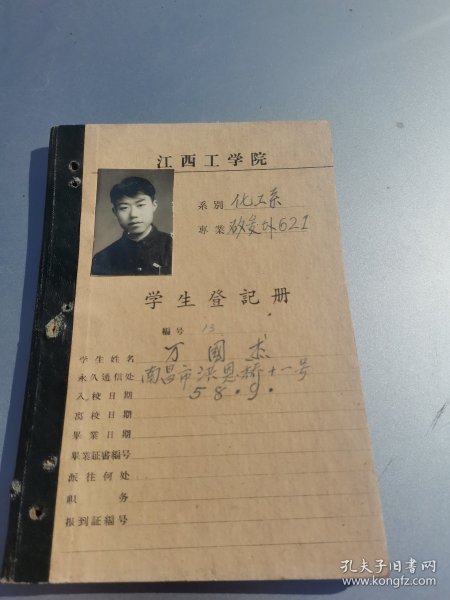 江西工学院
系别 化工系
專業 621
学生登記册
編号 13
学生姓名 万國杰
永久通信处 南昌市洪恩桥十一号
入校日期 58.9.
离校日期
畢業日期
畢業証書編号
派往何处
职务
报到証編号
孔夫子旧书网
www.kongfz.com